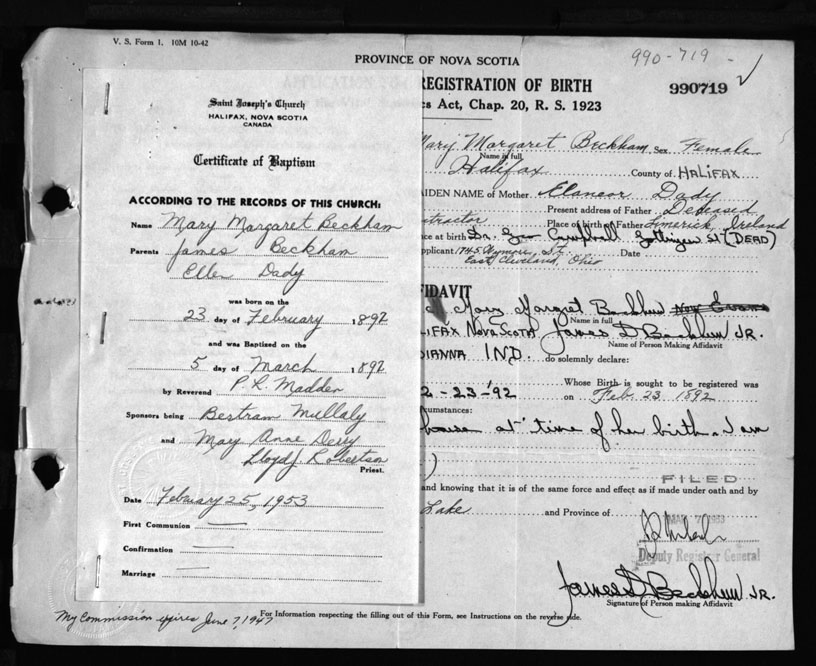 V. S. Form 1. 10M 10-42
PROVINCE OF NOVA SCOTIA
990-719
REGISTRATION OF BIRTH
990719
s Act, Chap. 20, R. S. 1923
Saint Joseph's Church
HALIFAX, NOVA SCOTIA
CANADA
Certificate of Baptism
ACCORDING TO THE RECORDS OF THIS CHURCH:
Name Mary Margaret Beckham
Parents James Beckham
Ellen Dady
was born on the
23 day of February 1892
and was Baptised on the
5 day of March 1892
by Reverend P. R. Madden
Sponsors being Bertram Mullaly
and Mary Anne Derry
Lloyd J. Robertson
Priest.
Date February 25, 1953
First Communion
Confirmation
Marriage
Mary Margaret Beckham Sex Female
Name in full
Halifax County of HALIFAX
AIDEN NAME of Mother Eleneor Dady
Present address of Father Deceased
tractor Place of birth of Father Limerick, Ireland
ce at birth Dr. Campbell Gottingen St (DEAD)
pplicant 1745 St. Date
East Cleveland, Ohio
FIDAVIT
Mary Margret
Name in full
LIFAX NOVA SCOTIA James D Beckham JR.
Name of Person Making Affidavit
DIANNA IND. do solemnly declare:
2-23-'92 Whose Birth is sought to be registered was
on Feb. 23. 1892
cumstances:
house at time of her birth. I am
)
FILED
and knowing that it is of the same force and effect as if made under oath and by
Lake and Province of
1953
Deputy Registrar General
James D Beckham JR.
Signature of Person making Affidavit
My Commission expires June 7, 1947
For Information respecting the filling out of this Form, see Instructions on the reverse side.